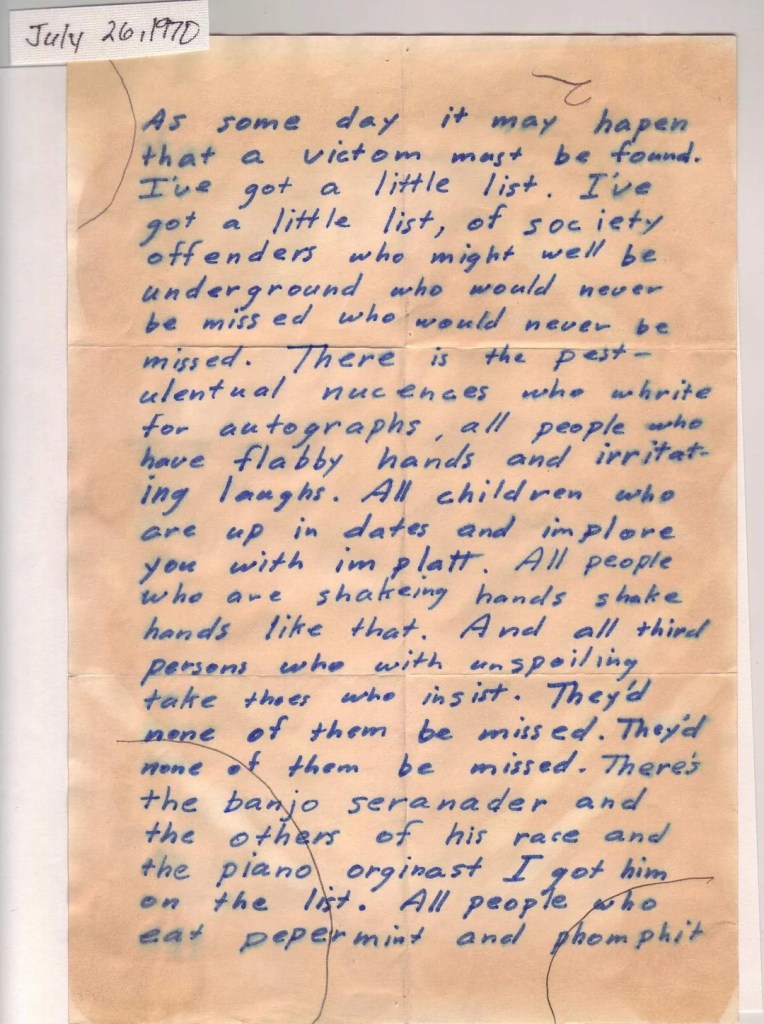 July 26, 1970
As some day it may hapen
that a victom must be found.
I've got a little list. I've
got a little list, of society
offenders who might well be
underground who would never
be missed who would never be
missed. There is the pest-
ulentual nucences who whrite
for autographs, all people who
have flabby hands and irritat-
ing laughs. All children who
are up in dates and implore
you with im platt. All people
who are shakeing hands shake
hands like that. And all third
persons who with unspoiling
take thoes who insist. They'd
none of them be missed. They'd
none of them be missed. There's
the banjo seranader and
the others of his race and
the piano orginast I got him
on the list. All people who
eat pepermint and phomphit